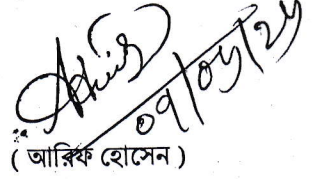 ০৭/০৮/২৫
( আরিফ হোসেন )